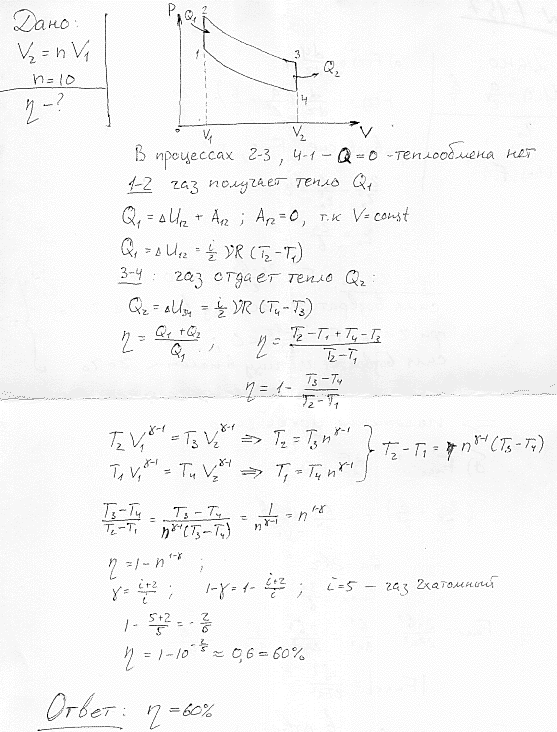 Дано:
V₂ = n V₁
n = 10
η - ?
P
Q₁
2
1
3
Q₂
4
V₁
V₂
V
В процессах 2-3, 4-1 - Q = 0 - теплообмена нет
1-2 газ получает тепло Q₁
Q₁ = ΔU₁₂ + A₁₂ ; A₁₂ = 0, т.к V = const
Q₁ = ΔU₁₂ = i/2 νR (T₂ - T₁)
3-4 : газ отдает тепло Q₂ :
Q₂ = ΔU₃₄ = i/2 νR (T₄ - T₃)
η = (Q₁ + Q₂)/Q₁ ; η = (T₂ - T₁ + T₄ - T₃)/(T₂ - T₁)
η = 1 - (T₃ - T₄)/(T₂ - T₁)
T₂ V₁^(γ-1) = T₃ V₂^(γ-1) ⇒ T₂ = T₃ n^(γ-1)
T₁ V₁^(γ-1) = T₄ V₂^(γ-1) ⇒ T₁ = T₄ n^(γ-1)
} T₂ - T₁ = n^(γ-1) (T₃ - T₄)
(T₃ - T₄)/(T₂ - T₁) = (T₃ - T₄)/(n^(γ-1) (T₃ - T₄)) = 1/n^(γ-1) = n^(1-γ)
η = 1 - n^(1-γ) ;
γ = (i+2)/i ; 1 - γ = 1 - (i+2)/i ; i = 5 - газ 2хатомный
1 - (5+2)/5 = - 2/5
η = 1 - 10^(-2/5) ≈ 0,6 = 60%
Ответ: η = 60%